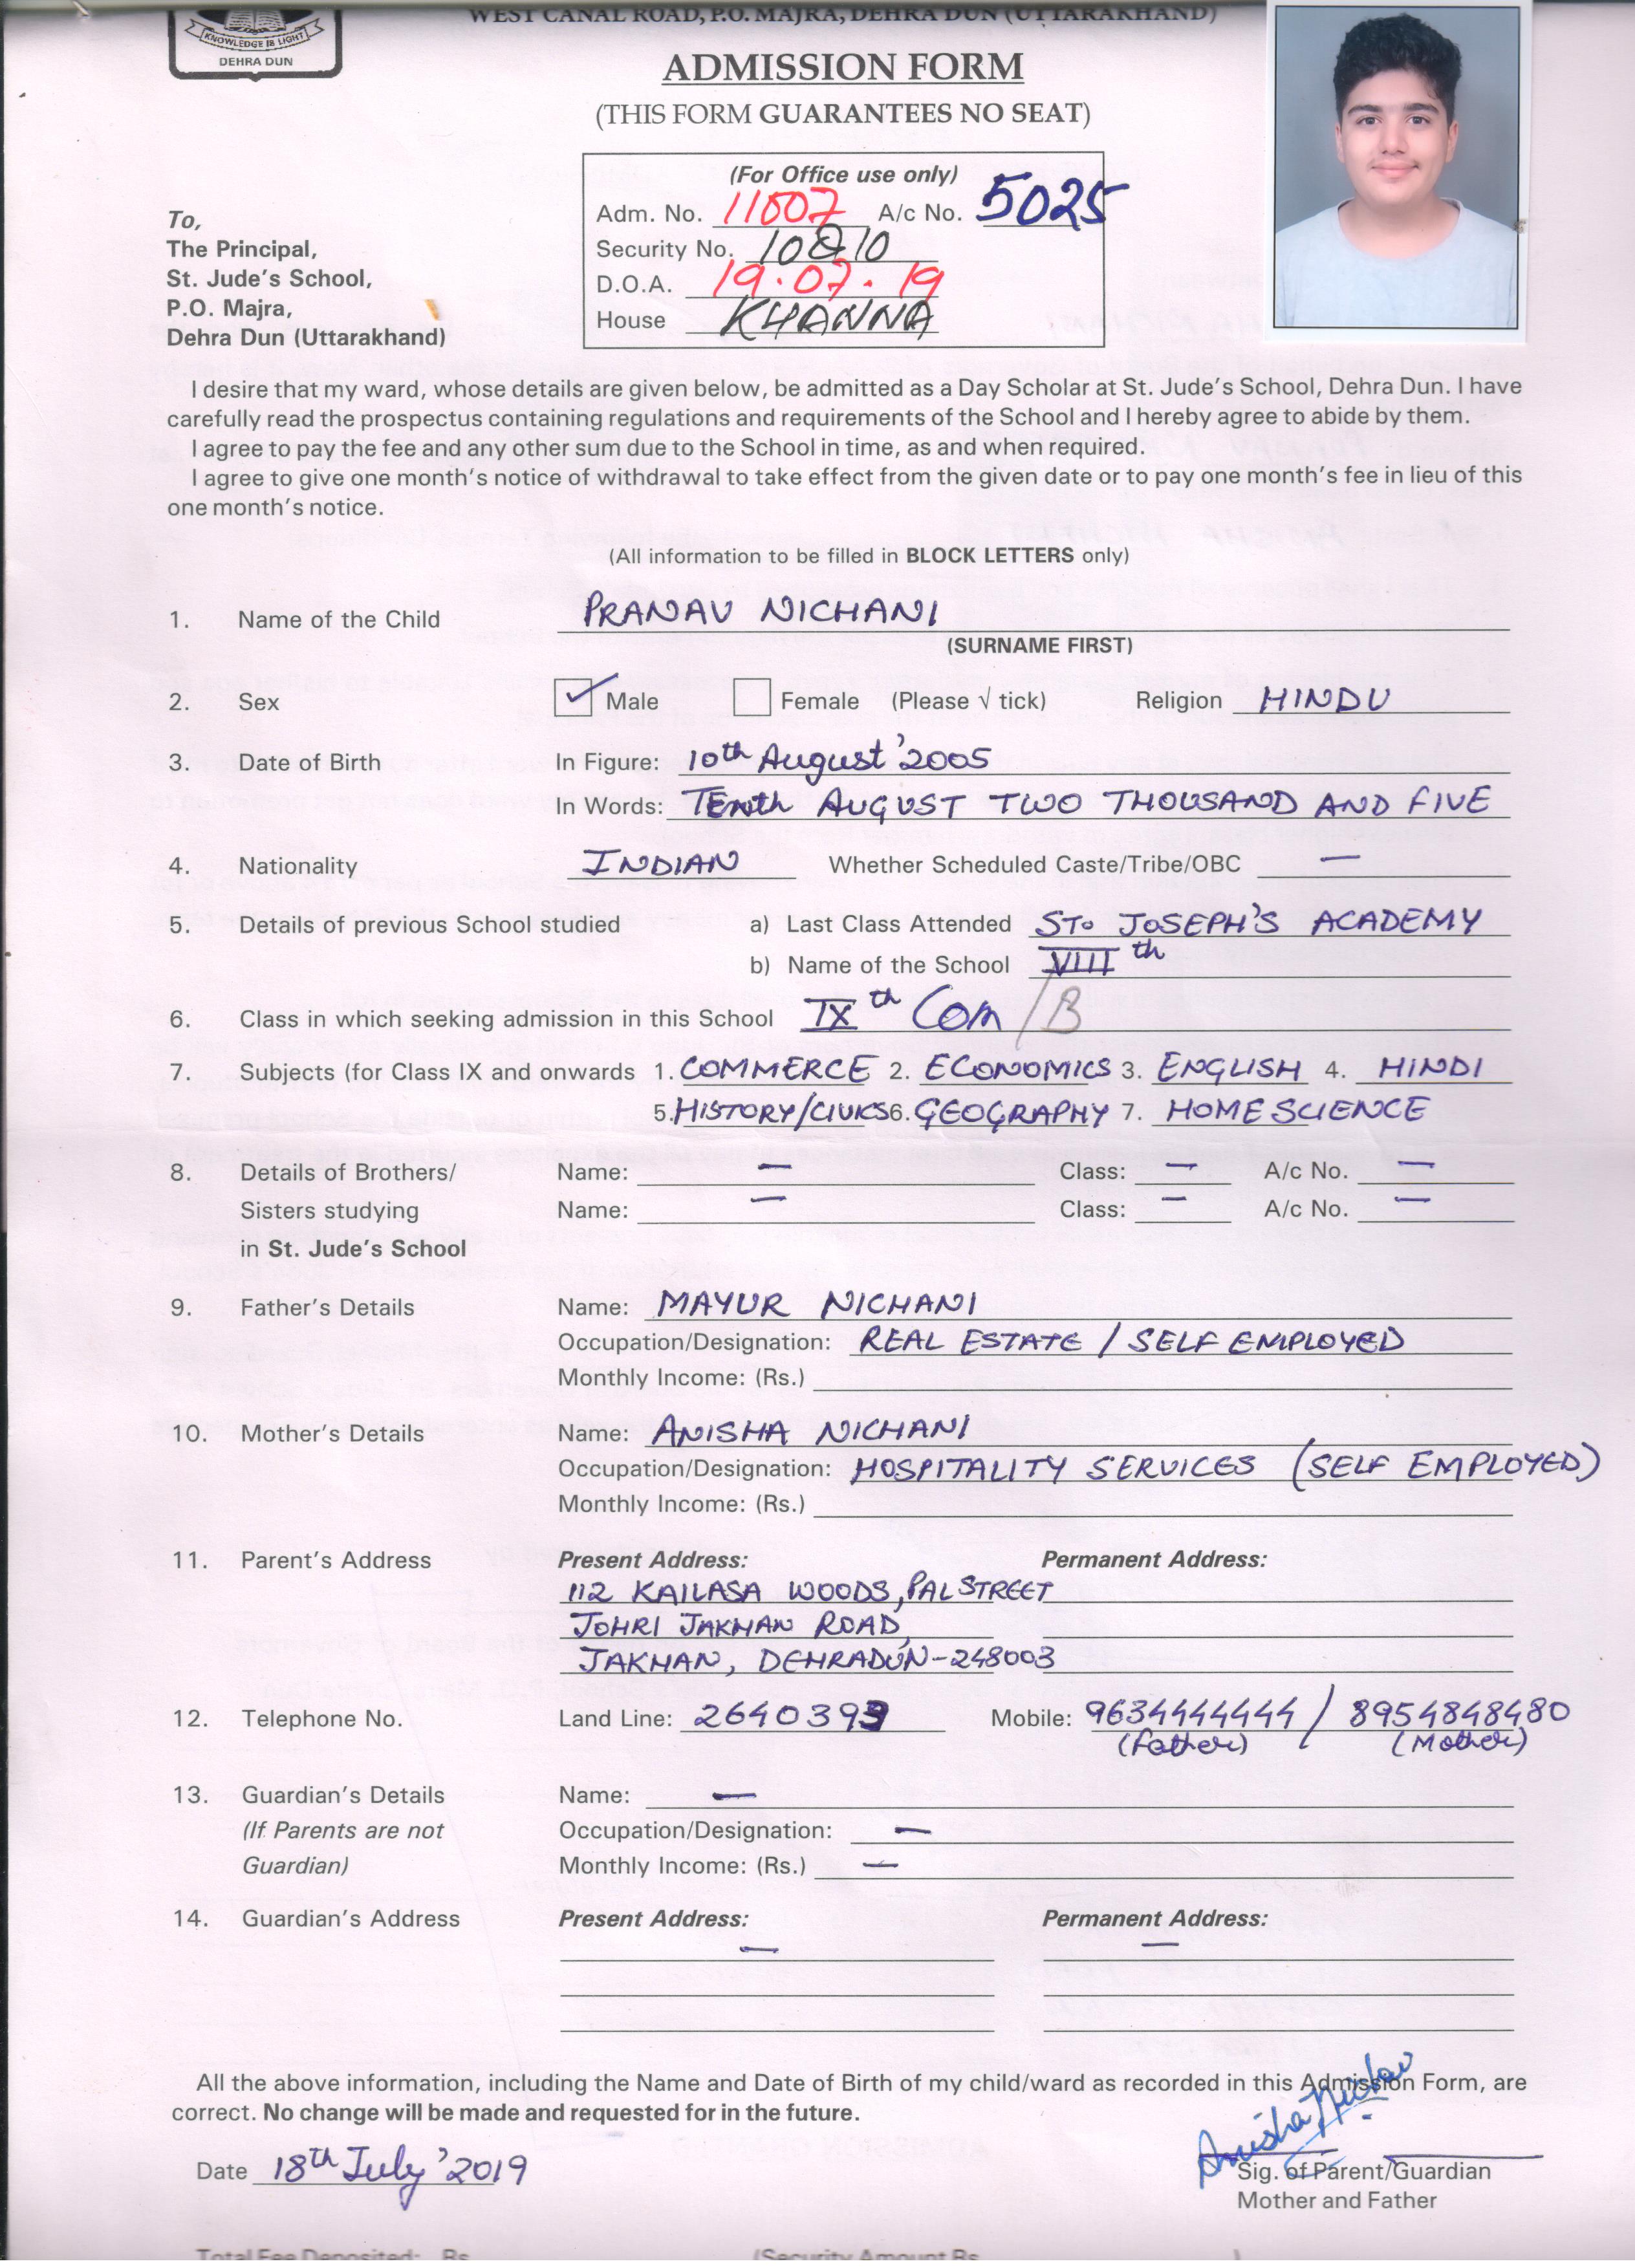 WEST CANAL ROAD, P.O. MAJRA, DEHRA DUN (UTTARAKHAND)
KNOWLEDGE IS LIGHT
DEHRA DUN
ADMISSION FORM
(THIS FORM GUARANTEES NO SEAT)
(For Office use only)
Adm. No. 11607 A/c No. 5025
Security No.
D.O.A. 19.07.19
House KHANNA
To,
The Principal,
St. Jude's School,
P.O. Majra,
Dehra Dun (Uttarakhand)
I desire that my ward, whose details are given below, be admitted as a Day Scholar at St. Jude's School, Dehra Dun. I have
carefully read the prospectus containing regulations and requirements of the School and I hereby agree to abide by them.
I agree to pay the fee and any other sum due to the School in time, as and when required.
I agree to give one month's notice of withdrawal to take effect from the given date or to pay one month's fee in lieu of this
one month's notice.
(All information to be filled in BLOCK LETTERS only)
1. Name of the Child PRANAV NICHANI
(SURNAME FIRST)
2. Sex Male Female (Please √ tick) Religion HINDU
3. Date of Birth In Figure: 10th August'2005
In Words: TENth AUGUST TWO THOUSAND AND FIVE
4. Nationality INDIAN Whether Scheduled Caste/Tribe/OBC —
5. Details of previous School studied a) Last Class Attended ST. JOSEPH'S ACADEMY
b) Name of the School VIII th
6. Class in which seeking admission in this School IX th Com /B
7. Subjects (for Class IX and onwards 1. COMMERCE 2. ECONOMICS 3. ENGLISH 4. HINDI
5. HISTORY/CIVICS 6. GEOGRAPHY 7. HOME SCIENCE
8. Details of Brothers/ Name: — Class: — A/c No. —
Sisters studying Name: — Class: — A/c No. —
in St. Jude's School
9. Father's Details Name: MAYUR NICHANI
Occupation/Designation: REAL ESTATE / SELF EMPLOYED
Monthly Income: (Rs.)
10. Mother's Details Name: ANISHA NICHANI
Occupation/Designation: HOSPITALITY SERVICES (SELF EMPLOYED)
Monthly Income: (Rs.)
11. Parent's Address Present Address: Permanent Address:
112 KAILASA WOODS, PAL STREET
JOHRI JAKHAN ROAD,
JAKHAN, DEHRADUN-248003
12. Telephone No. Land Line: 2640393 Mobile: 9634444444 / 8954848480
(Father) (Mother)
13. Guardian's Details Name: —
(If Parents are not Occupation/Designation: —
Guardian) Monthly Income: (Rs.) —
14. Guardian's Address Present Address: Permanent Address:
— —
All the above information, including the Name and Date of Birth of my child/ward as recorded in this Admission Form, are
correct. No change will be made and requested for in the future.
Anisha Nichani
Date 18th July'2019
Sig. of Parent/Guardian
Mother and Father
Total Fee Deposited: Rs. (Security Amount Rs. )